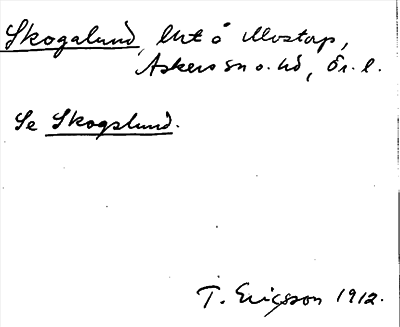 Skogalund, lht å Mostorp,
Askers sn o. hd, Ör. l.
Se Skogslund.
T. Ericsson 1912.